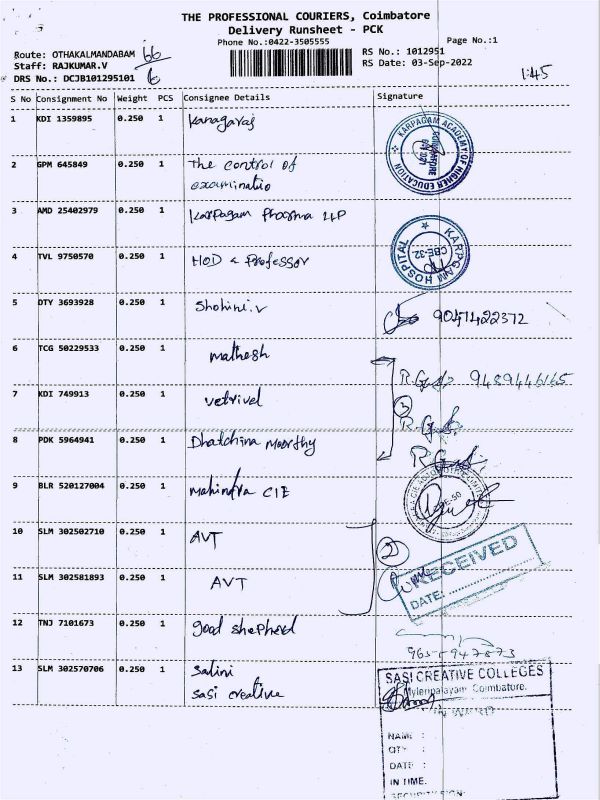 THE PROFESSIONAL COURIERS, Coimbatore
Delivery Runsheet - PCK
Phone No.:0422-3505555
Page No.:1
Route: OTHAKALMANDABAM 66
RS No.: 1012951
Staff: RAJKUMAR.V
RS Date: 03-Sep-2022
DRS No.: DCJB101295101
1:45
S No Consignment No Weight PCS Consignee Details Signature
1 KDI 1359895 0.250 1 Kanagaraj
KARPAGAM ACADEMY OF HIGHER EDUCATION
COIMBATORE
641 021
2 GPM 645849 0.250 1 The control of
examinatio
3 AMD 25402979 0.250 1 Karpagam Pharma LLP
KARPGAM HOSPITAL
CBE-32
4 TVL 9750570 0.250 1 HOD & Professor
5 DTY 3693928 0.250 1 Shohini.v 9047422372
6 TCG 50229533 0.250 1 mathesh
R.G 9489446165
7 KDI 749913 0.250 1 vetrivel
3
8 PDK 5964941 0.250 1 Dhatchina moorthy
9 BLR 520127004 0.250 1 mahindra CIE
10 SLM 302502710 0.250 1 AVT
2
RECEIVED
11 SLM 302581893 0.250 1 AVT
DATE:
12 TNJ 7101673 0.250 1 good shepherd
9655947873
13 SLM 302570706 0.250 1 Salini
sasi creative
SASI CREATIVE COLLEGES
Myleripalayam Coimbatore.
IN WARD
NAME :
CITY :
DATE :
IN TIME.
SECURITY SIGN: